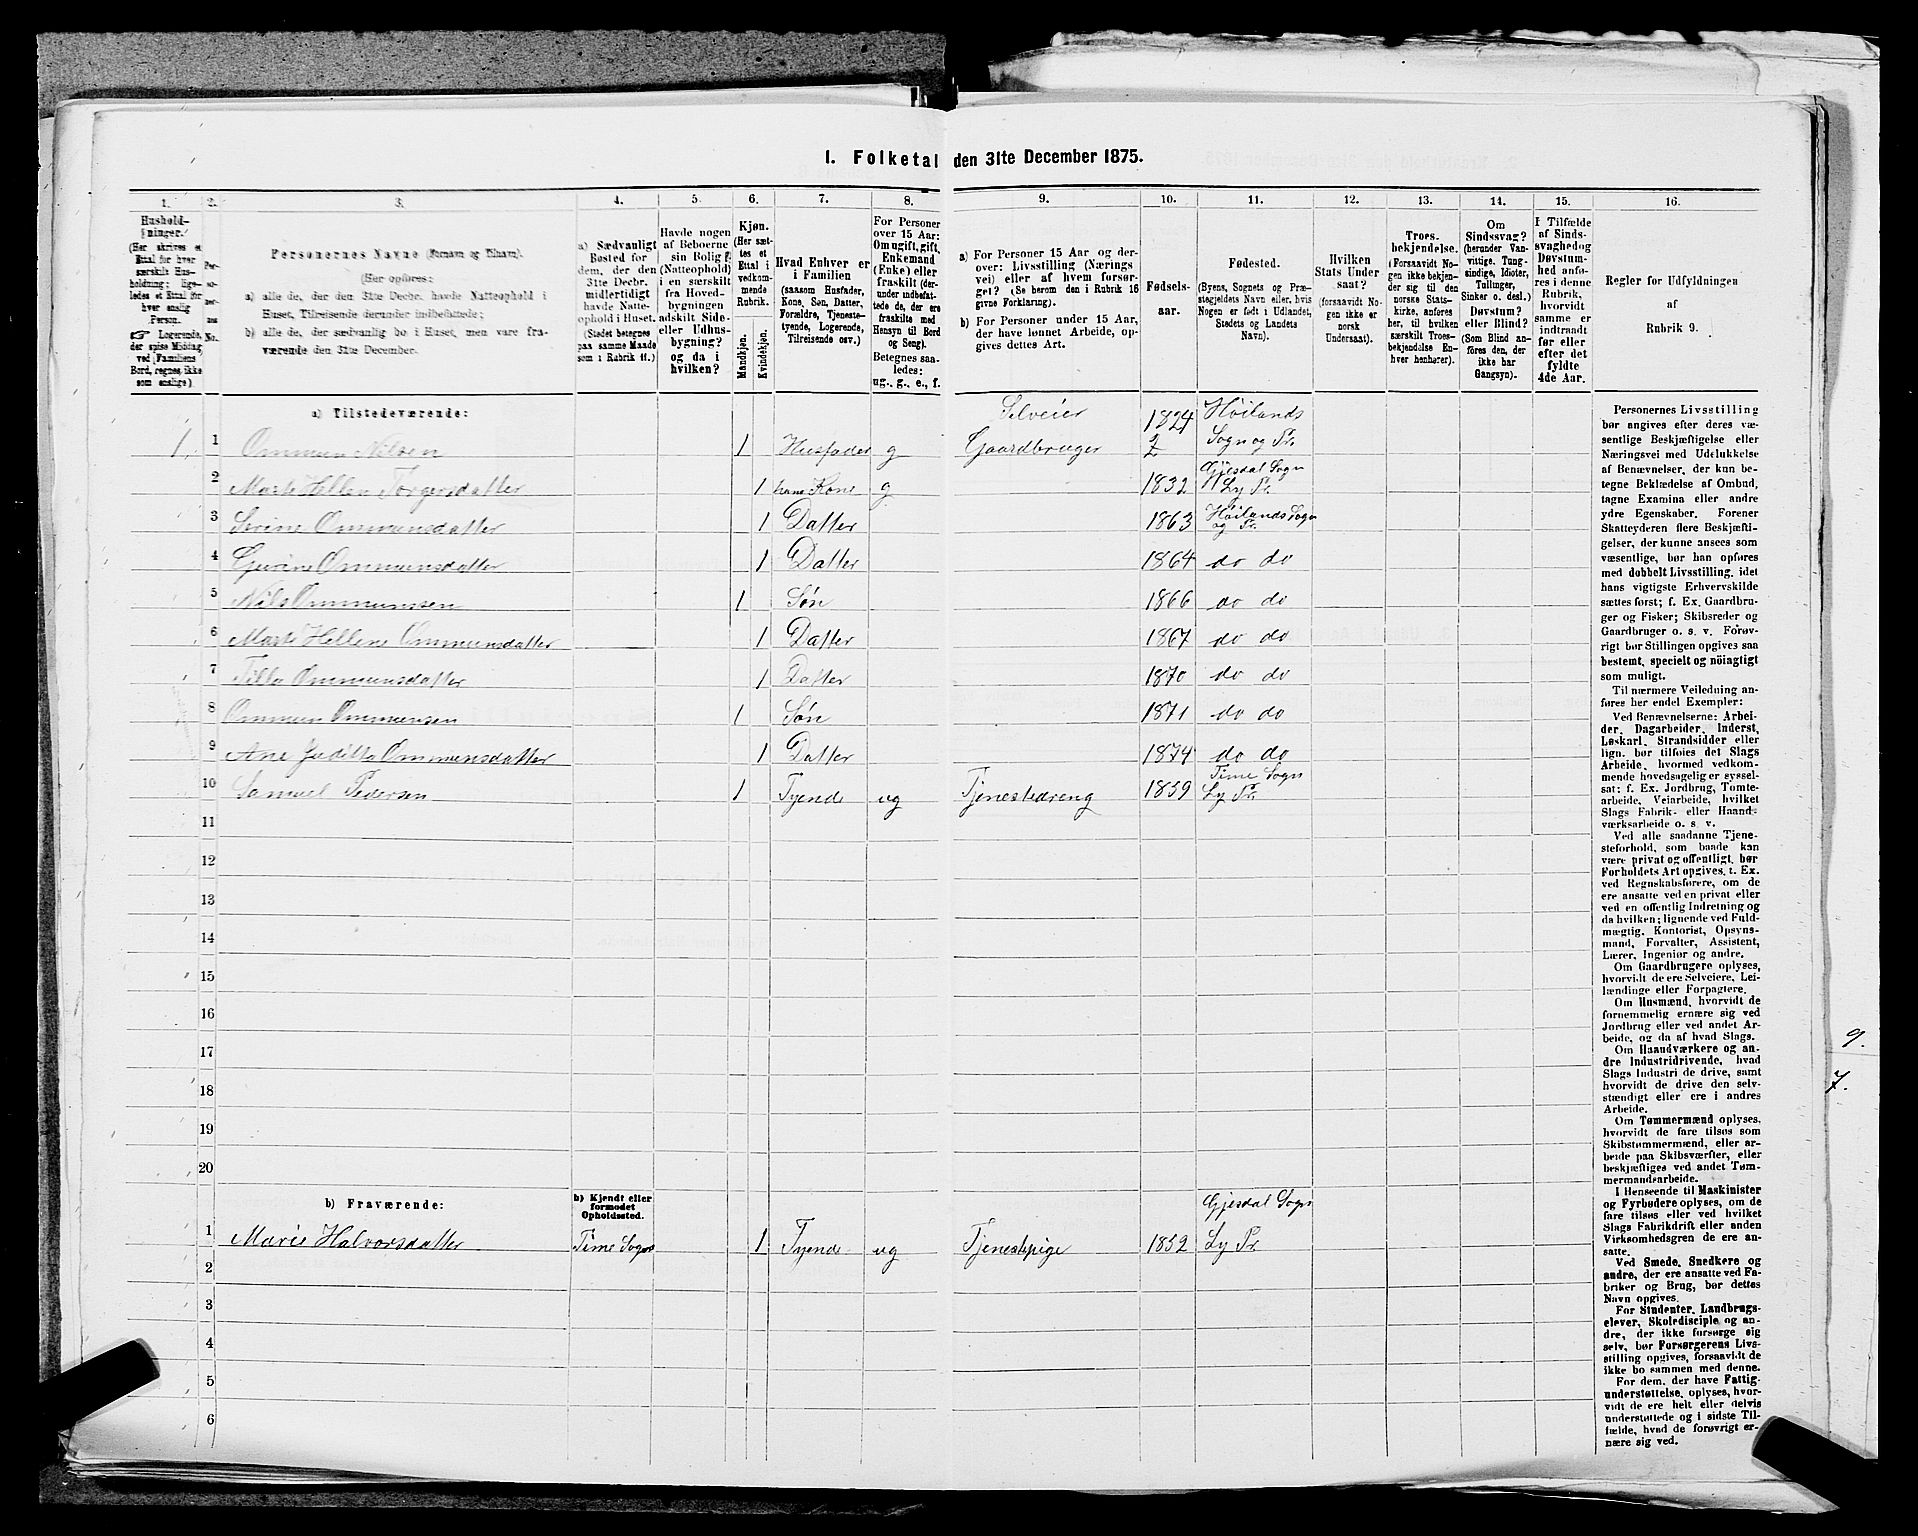 1. Folketal den 31te December 1875.
1. 2. 3. 4. 5. 6. 7. 8. 9. 10. 11. 12. 13. 14. 15. 16.
Hushold-
ninger.
(Her skrives et
Ettal for hver
særskilt Hus-
holdning; lige-
ledes et Ettal for
hver enslig
Person.
☞ Logerende,
der spise Middag
ved Familiens
Bord, regnes ikke
som enslige).
Per-
so-
ner-
nes
No.
Personernes Navne (Fornavn og Tilnavn).
(Her opføres:
a) alle de, der den 31te Decbr. havde Natteophold i
Huset, Tilreisende derunder indbefattede;
b) alle de, der sædvanlig bo i Huset, men vare fra-
værende den 31te December.
a) Sædvanligt
Bosted for
dem, der den
31te Decbr.
midlertidigt
havde Natte-
ophold i Huset.
(Stedet betegnes
paa samme Maade
som i Rubrik 11.)
Havde nogen
af Beboerne
sin Bolig
(Natteophold)
i en særskilt
fra Hoved-
bygningen
adskilt Side-
eller Udhus-
bygning?
og da i
hvilken?
Kjøn.
(Her sæt-
tes et
Ettal i
vedkom-
mende
Rubrik.)
Mandkjøn.
Kvindekjøn.
Hvad Enhver er
i Familien
(saasom Husfader,
Kone, Søn, Datter,
Forældre, Tjeneste-
tyende, Logerende,
Tilreisende osv.)
For Personer
over 15 Aar:
Om ugift, gift,
Enkemand
(Enke) eller
fraskilt (der-
under indbefat-
tede de, der ere
fraskilte med
Hensyn til Bord
og Seng).
Betegnes saa-
ledes:
ug., g., e., f.
a) For Personer 15 Aar og der-
over: Livsstilling (Nærings
vei) eller af hvem forsør-
get? (Se herom den i Rubrik 16
givne Forklaring).
b) For Personer under 15 Aar,
der have lønnet Arbeide, op-
gives dettes Art.
Fødsels-
aar.
Fødested.
(Byens, Sognets og Præ-
stegjeldets Navn eller, hvis
Nogen er født i Udlandet,
Stedets og Landets
Navn).
Hvilken
Stats Under-
saat?
(forsaavidt No-
gen ikke er
norsk
Undersaat).
Troes-
bekjendelse.
(Forsaavidt No-
gen ikke bekjen-
der sig til den
norske Stats-
kirke, anføres
her, til hvilken
særskilt Troes-
bekjendelse En-
hver henhører).
Om
Sindssvag?
(herunder Van-
vittige, Tung-
sindige, Idioter,
Tullinger,
Sinker o. desl.)
Døvstum?
eller Blind?
(Som Blind an-
føres den, der
ikke har
Gangsyn).
I Tilfælde
af Sinds-
svaghed og
Døvstum-
hed anfø-
res i denne
Rubrik,
hvorvidt
samme er
indtraadt
før eller
efter det
fyldte
4de Aar.
Regler for Udfyldningen
af
Rubrik 9.
a) Tilstedeværende:
1 1 Ommun Nilsen 1 Husfader g Selveier Gaardbruger 1824 Høilands Sogn og Pr.
2 Marte Hellen Torgersdatter 1 hans Kone g 1832 Gjesdal Sogn Ly Pr.
3 Serine Ommunsdatter 1 Datter 1863 Høilands Sogn og Pr.
4 Gurine Ommunsdatter 1 Datter 1864 do do
5 Nils Ommunsen 1 Søn 1866 do do
6 Marte Hellene Ommunsdatter 1 Datter 1867 do do
7 Tilla Ommunsdatter 1 Datter 1870 do do
8 Ommun Ommunsen 1 Søn 1871 do do
9 Ane Juditta Ommunsdatter 1 Datter 1874 do do
10 Samuel Pedersen 1 Tyende ug Tjenestedreng 1859 Time Sogn Ly Pr.
11
12
13
14
15
16
17
18
19
20
b) Fraværende:
b) Kjendt eller
formodet
Opholdssted.
1 Marie Halvorsdatter Time Sogn 1 Tyende ug Tjenestepige 1852 Gjesdal Sogn Ly Pr.
2
3
4
5
6
Personernes Livsstilling
bør angives efter deres væ-
sentlige Beskjæftigelse eller
Næringsvei med Udelukkelse
af Benævnelser, der kun be-
tegne Beklædelse af Ombud,
tagne Examina eller andre
ydre Egenskaber. Forener
Skatteyderen flere Beskjæfti-
gelser, der kunne ansees som
væsentlige, bør han opføres
med dobbelt Livsstilling, idet
hans vigtigste Erhvervskilde
sættes først; f. Ex. Gaardbru-
ger og Fisker; Skibsreder og
Gaardbruger o. s. v. Forøv-
rigt bør Stillingen opgives saa
bestemt, specielt og nøiagtigt
som muligt.
Til nærmere Veiledning an-
føres her endel Exempler:
Ved Benævnelserne: Arbei-
der, Dagarbeider, Inderst,
Løskarl, Strandsidder eller
lign. bør tilføies det Slags
Arbeide, hvormed vedkom-
mende hovedsagelig er syssel-
sat; f. Ex. Jordbrug, Tomte-
arbeide, Veiarbeide, hvilket
Slags Fabrik- eller Haand-
værksarbeide o. s. v.
Ved alle saadanne Tjene-
steforhold, som baade kan
være privat og offentligt, bør
Forholdets Art opgives, t. Ex.
ved Regnskabsførere, om de
ere ansatte ved en privat eller
ved en offentlig Indretning og
da hvilken; lignende ved Fuld-
mægtig, Kontorist, Opsyns-
mand, Forvalter, Assistent,
Lærer, Ingeniør og andre.
Om Gaardbrugere oplyses,
hvorvidt de ere Selveiere, Lei-
lændinge eller Forpagtere.
Om Husmænd, hvorvidt de
fornemmelig ernære sig ved
Jordbrug eller ved andet Ar-
beide, og da af hvad Slags.
Om Haandværkere og an-
dre Industridrivende, hvad
Slags Industri de drive, samt
hvorvidt de drive den selv-
stændigt eller ere i andres
Arbeide.
Om Tømmermænd oplyses,
hvorvidt de fare tilsøs som
Skibstømmermænd, eller ar-
beide paa Skibsværfter, eller
beskjæftiges ved andet Tøm-
mermandsarbeide.
I Henseende til Maskinister
og Fyrbødere oplyses, om de
fare tilsøs eller ved hvilket
Slags Fabrikdrift eller anden
Virksomhedsgren de ere an-
satte.
Ved Smede, Snedkere og
andre, der ere ansatte ved Fa-
briker og Brug, bør dettes
Navn opgives.
For Studenter, Landbrugs-
elever, Skoledisciple og an-
dre, der ikke forsørge sig
selv, bør Forsørgerens Livs-
stilling opgives, forsaavidt de
ikke bo sammen med denne.
For dem, der have Fattig-
understøttelse, oplyses, hvor-
vidt de ere helt eller delvis
understøttede og i sidste Til-
fælde, hvad de forøvrigt er-
nære sig ved.
9.
7.